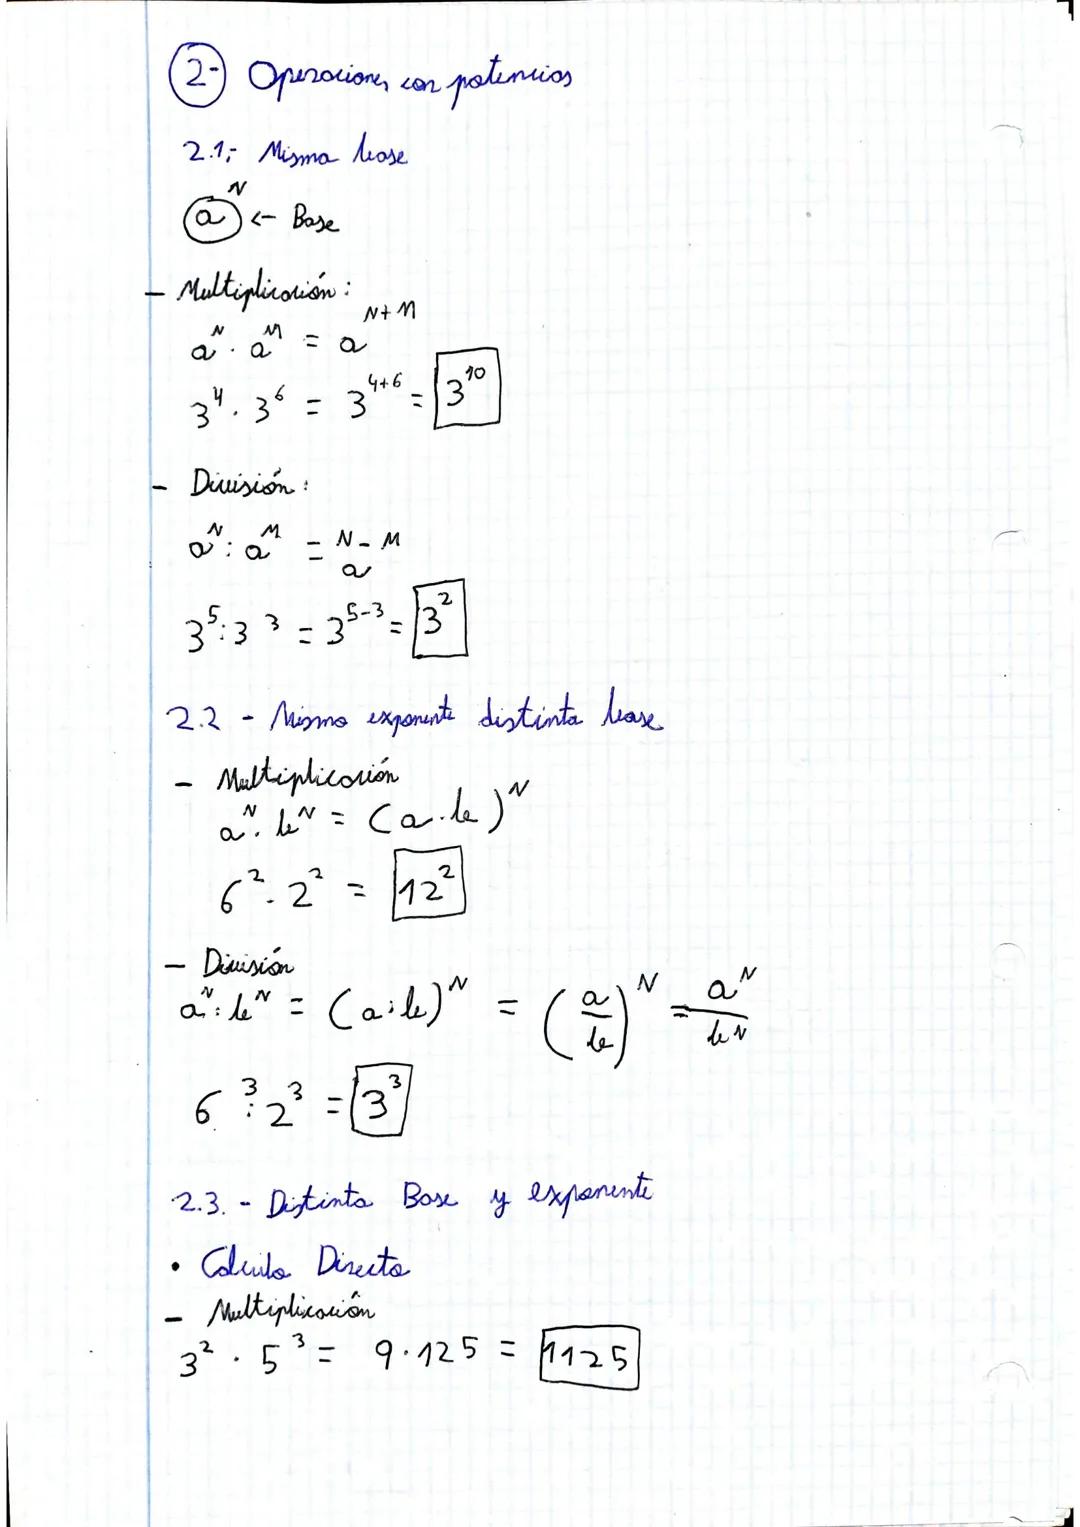 2- Operaciones con potencias
2.1,- Misma base
a^N <- Base
- Multiplicación:
a^N · a^M = a^(N+M)
3^4 · 3^6 = 3^(4+6) = 3^10
- División:
a^N : a^M = a^(N-M)
3^5 : 3^3 = 3^(5-3) = 3^2
2.2 - Mismo exponente distinta base
- Multiplicación
a^N · b^N = (a·b)^N
6^2 · 2^2 = 12^2
- División
a^N : b^N = (a:b)^N = (a/b)^N = a^N/b^N
6^3 : 2^3 = 3^3
2.3. - Distinta Base y exponente
• Calculo Directo
- Multiplicación
3^2 · 5^3 = 9·125 = 1125